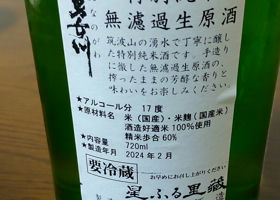 男女川
みなのがわ
特別純米
無濾過生原酒
筑波山の湧水で丁寧に醸し
た特別純米酒です。手造り
に徹した無濾過生原酒の、
搾ったままの芳醇な香りと
味わいをお楽しみください。
★アルコール分 17度
★原材料名 米(国産)・米麹(国産米)
酒造好適米100%使用
精米歩合60%
★内容量 720ml
★製造年月 2024年2月
要冷蔵
お早めにお召し上がりください
星ふる里蔵